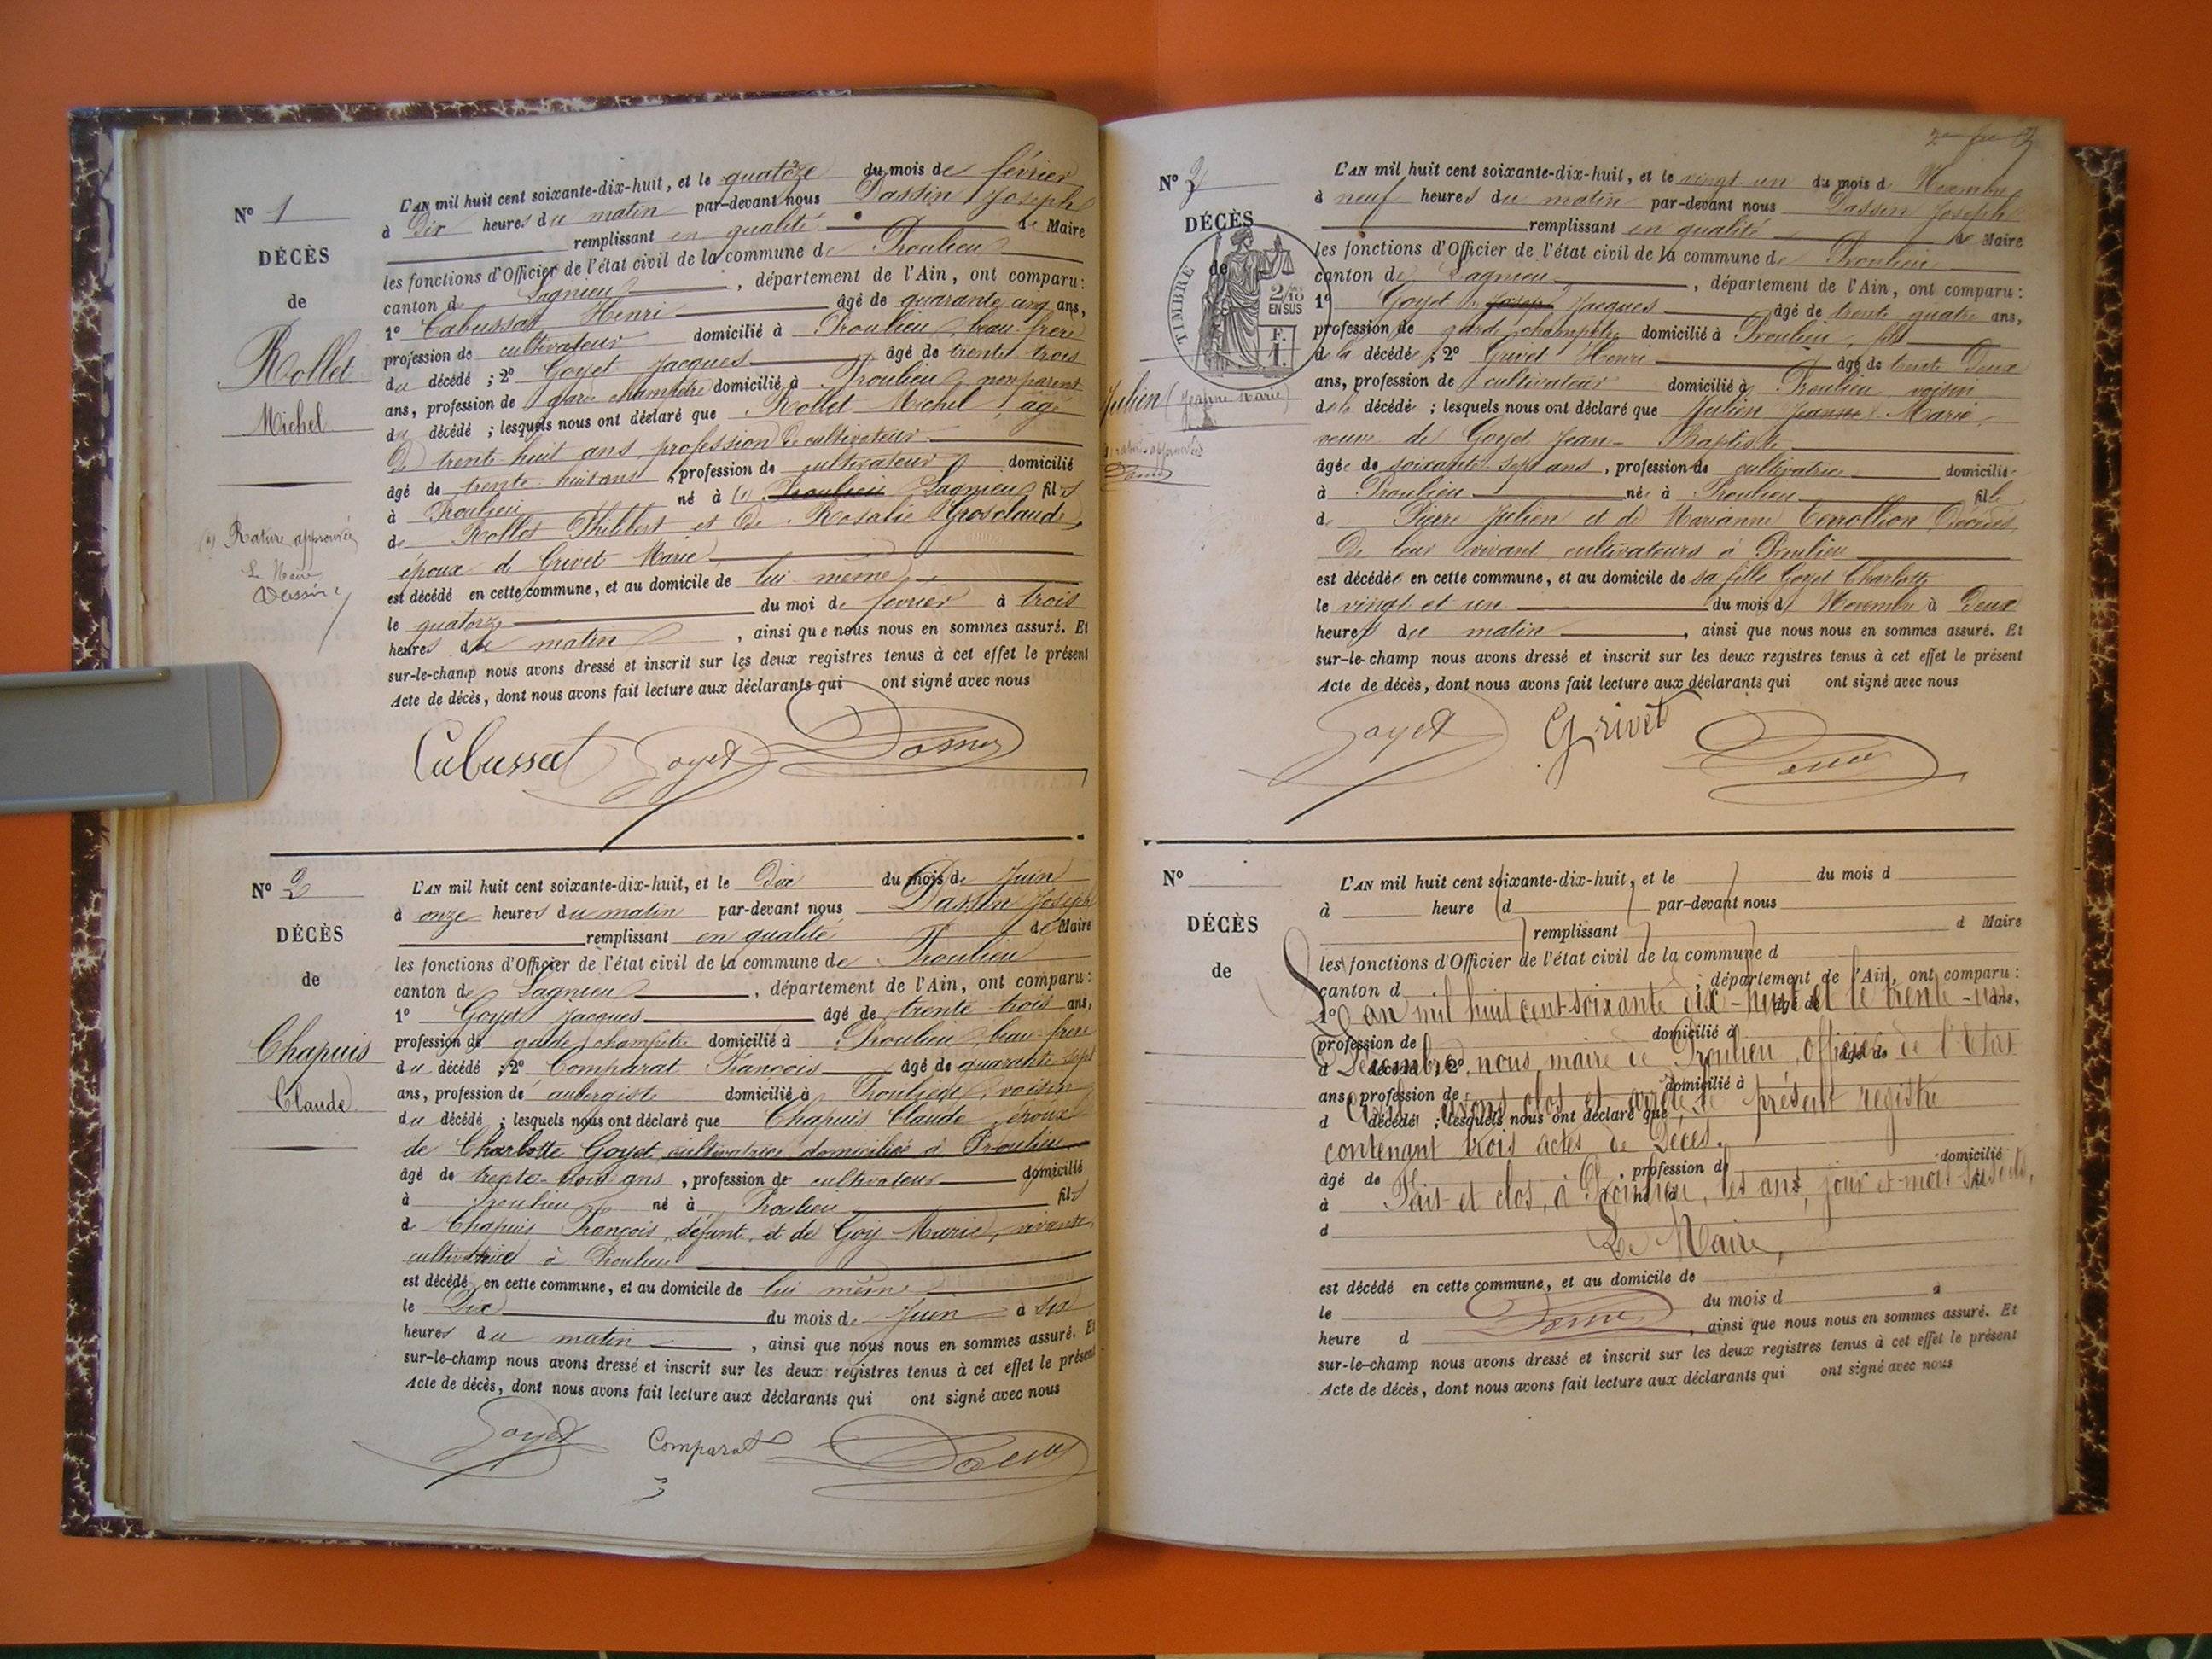 N° 1
DÉCÈS
de
Rollet
Michel
(1) Rature approuvée
Le Maire
L'AN mil huit cent soixante-dix-huit, et le quatorze du mois de février
à Dix heures du matin par-devant nous Dassin Joseph
remplissant en qualité de Maire
les fonctions d'Officier de l'état civil de la commune de Proulieu
canton de Lagnieu, département de l'Ain, ont comparu :
1° Cabussat Henri âgé de quarante cinq ans,
profession de cultivateur domicilié à Proulieu, beau-frère
du décédé ; 2° Goyet Jacques âgé de trente trois
ans, profession de garde champêtre domicilié à Proulieu, non parent
du décédé ; lesquels nous ont déclaré que Rollet Michel, agé
de trente huit ans, profession de cultivateur
âgé de trente-huit ans, profession de cultivateur domicilié
à Proulieu né à (1) Proulieu Lagnieu fils
de Rollet Philibert et de Rosalie Grosclaude,
époux de Grivet Marie
est décédé en cette commune, et au domicile de lui même
le quatorze du moi de février à trois
heures du matin, ainsi que nous nous en sommes assuré. Et
sur-le-champ nous avons dressé et inscrit sur les deux registres tenus à cet effet le présent
Acte de décès, dont nous avons fait lecture aux déclarants qui ont signé avec nous
Cabussat Goyet Dassin
N° 2
DÉCÈS
de
Chapuis
Claude
L'AN mil huit cent soixante-dix-huit, et le Dix du mois de Juin
à onze heures du matin par-devant nous Dassin Joseph
remplissant en qualité de Maire
les fonctions d'Officier de l'état civil de la commune de Proulieu
canton de Lagnieu, département de l'Ain, ont comparu :
1° Goyet Jacques âgé de trente trois ans,
profession de garde champêtre domicilié à Proulieu, beau-frère
du décédé ; 2° Comparat François âgé de quarante-sept
ans, profession de aubergiste domicilié à Proulieu, voisin
du décédé ; lesquels nous ont déclaré que Chapuis Claude époux
de Charlotte Goyet, cultivatrice domiciliée à Proulieu
âgé de trente-trois ans, profession de cultivateur domicilié
à Proulieu né à Proulieu fils
de Chapuis François, défunt, et de Goy Marie, vivante
cultivatrice à Proulieu
est décédé en cette commune, et au domicile de lui même
le Dix du mois de Juin à six
heures du matin, ainsi que nous nous en sommes assuré. Et
sur-le-champ nous avons dressé et inscrit sur les deux registres tenus à cet effet le présent
Acte de décès, dont nous avons fait lecture aux déclarants qui ont signé avec nous
Goyet Comparat Dassin
N° 3
DÉCÈS
de
TIMBRE
2/10
EN SUS
F.
1.
Julien (Jeanne Marie)
L'AN mil huit cent soixante-dix-huit, et le vingt-un du mois de Novembre
à neuf heures du matin par-devant nous Dassin Joseph
remplissant en qualité de Maire
les fonctions d'Officier de l'état civil de la commune de Proulieu
canton de Lagnieu, département de l'Ain, ont comparu :
1° Goyet Joseph Jacques âgé de trente quatre ans,
profession de garde champêtre domicilié à Proulieu, fils
de la décédée ; 2° Grivet Henri âgé de trente Deux
ans, profession de cultivateur domicilié à Proulieu voisin
de la décédée ; lesquels nous ont déclaré que Julien Jeanne Marie,
veuve de Goyet Jean-Baptiste
âgée de soixante-sept ans, profession de cultivatrice domicilié
à Proulieu née à Proulieu fille
de Pierre Julien et de Marianne Terrollion, Décédés
De leur vivant cultivateurs à Proulieu
est décédée en cette commune, et au domicile de sa fille Goyet Charlotte
le vingt et un du mois de Novembre à Deux
heures du matin, ainsi que nous nous en sommes assuré. Et
sur-le-champ nous avons dressé et inscrit sur les deux registres tenus à cet effet le présent
Acte de décès, dont nous avons fait lecture aux déclarants qui ont signé avec nous
Goyet Grivet Dassin
N°
DÉCÈS
de
L'AN mil huit cent soixante-dix-huit, et le du mois d
à heure d par-devant nous
remplissant d Maire
les fonctions d'Officier de l'état civil de la commune d
canton d ; département de l'Ain, ont comparu :
L'an mil huit cent soixante dix-huit et le trente-un
1° âgé de ans,
profession de domicilié à
Décembre, nous maire de Proulieu, officier de l'état
d décédé ; 2° âgé de
ans, profession de domicilié à
Civil, avons clos et arrêté le présent registre
d décédé ; lesquels nous ont déclaré que
contenant trois actes de Décès.
âgé de , profession de domicilié
Fait et clos, à Proulieu, les ans, jour et mois susdits,
à né à
d
Le Maire,
est décédé en cette commune, et au domicile de
le du mois d à
Dassin
heure d , ainsi que nous nous en sommes assuré. Et
sur-le-champ nous avons dressé et inscrit sur les deux registres tenus à cet effet le présent
Acte de décès, dont nous avons fait lecture aux déclarants qui ont signé avec nous